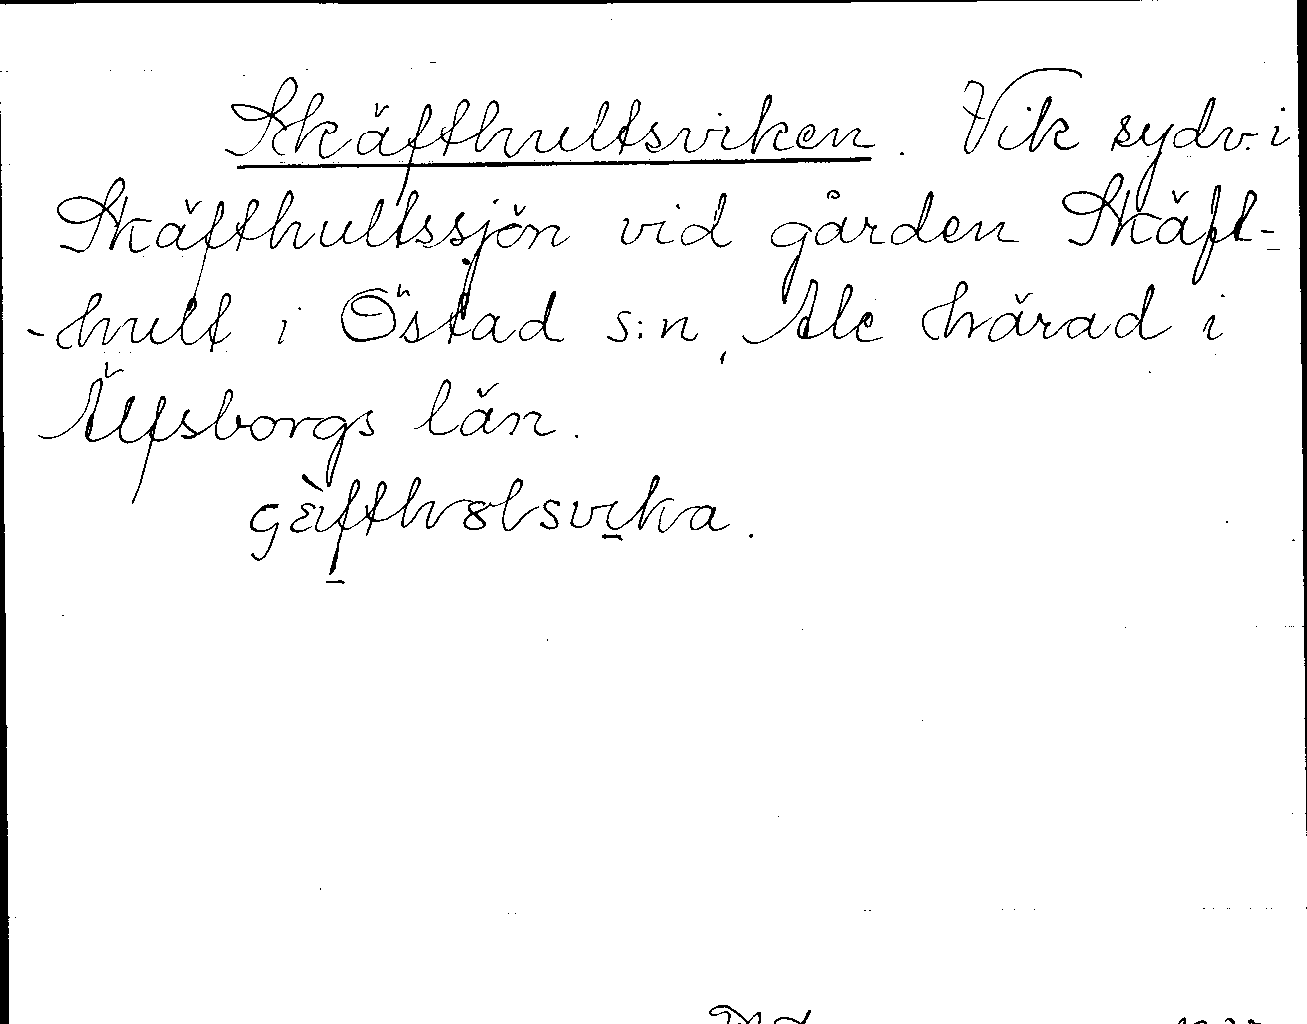 Skäfthultsviken. Vik sydv. i
Skäfthultssjön vid gården Skäft-
-hult i Östad s:n, Ale härad i
Älfsborgs län.